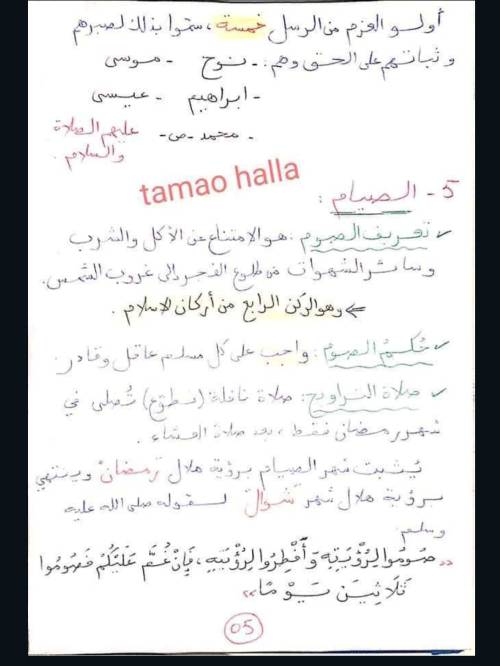 أولو العزم من الرسل خمسة، سمّوا بذلك لصبرهم
و ثباتهم على الحق وهم: - نوح - موسى
- ابراهيم - عيسى
- محمد -ص- عليهم الصلاة
والسلام.
tamao halla
5 - الصيام :
✓ تعريف الصوم : هو الامتناع عن الأكل والشرب
وسائر الشهوات من طلوع الفجر الى غروب الشمس.
⇐ وهو الركن الرابع من أركان الاسلام .
✓ حُكمُ الصوم : واجب على كل مسلم عاقل وقادر.
✓ صلاة التراويح : صلاة نافلة (تطوّع) تُصلى في
شهر رمضان فقط ، بعد صلاة العشاء .
يُثبت شهر الصيام برؤية هلال رمضان وينتهي
برؤية هلال شهر شوال لقوله صلى الله عليه
وسلم:
<<صُومُوا لِرُؤْيَتِهِ وَأَفْطِرُوا لِرُؤْيَتِهِ ، فَإِنْ غُمَّ عَلَيْكُمْ فَصُومُوا
ثَلَاثِينَ يَوْمًا>>
05